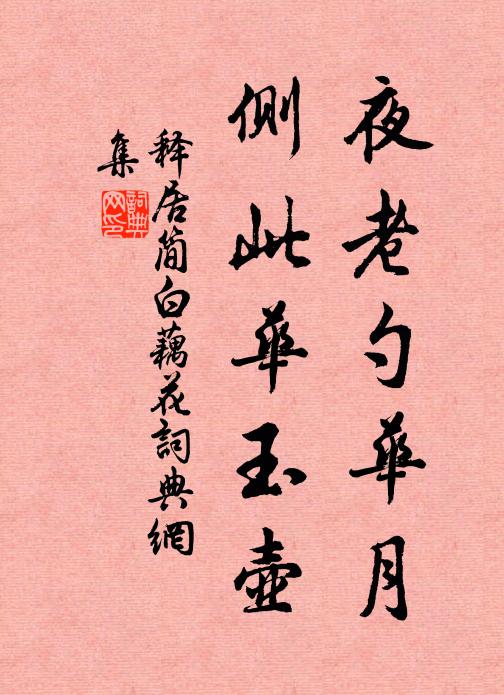 夜老勺華月
側此華玉壺
釋居簡白藕花詞典網
集
詞典
网印